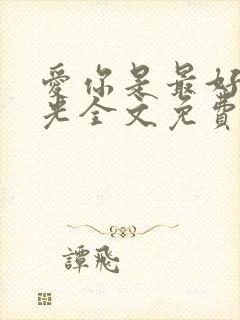 爱你是最好
光全文免費
譚飛